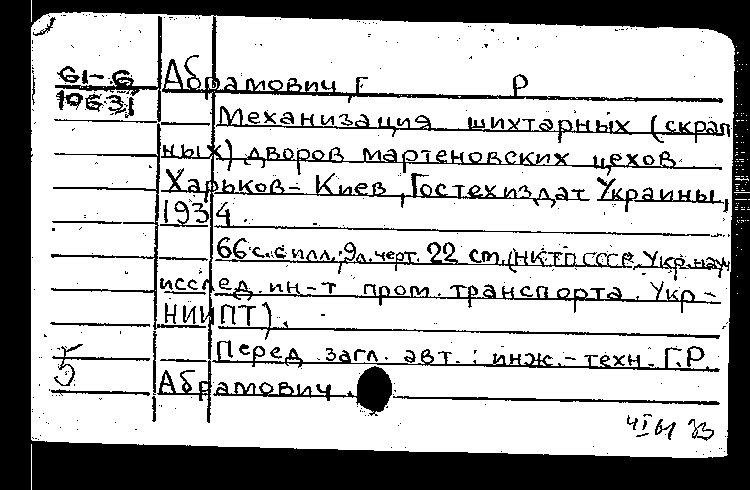 61-6 Абрамович, Г Р
10631
Механизация шихтарных (скрап
ных) дворов мартеновских цехов
Харьков-Киев, Гостехиздат Украины,
1934.
66 с. с илл.; 9л. черт. 22 см. (НКТП СССР. Укр. науч
исслед. ин-т пром. транспорта. Укр-
НИИПТ).
Перед загл. авт.: инж.-техн. Г.Р.
5 Абрамович.